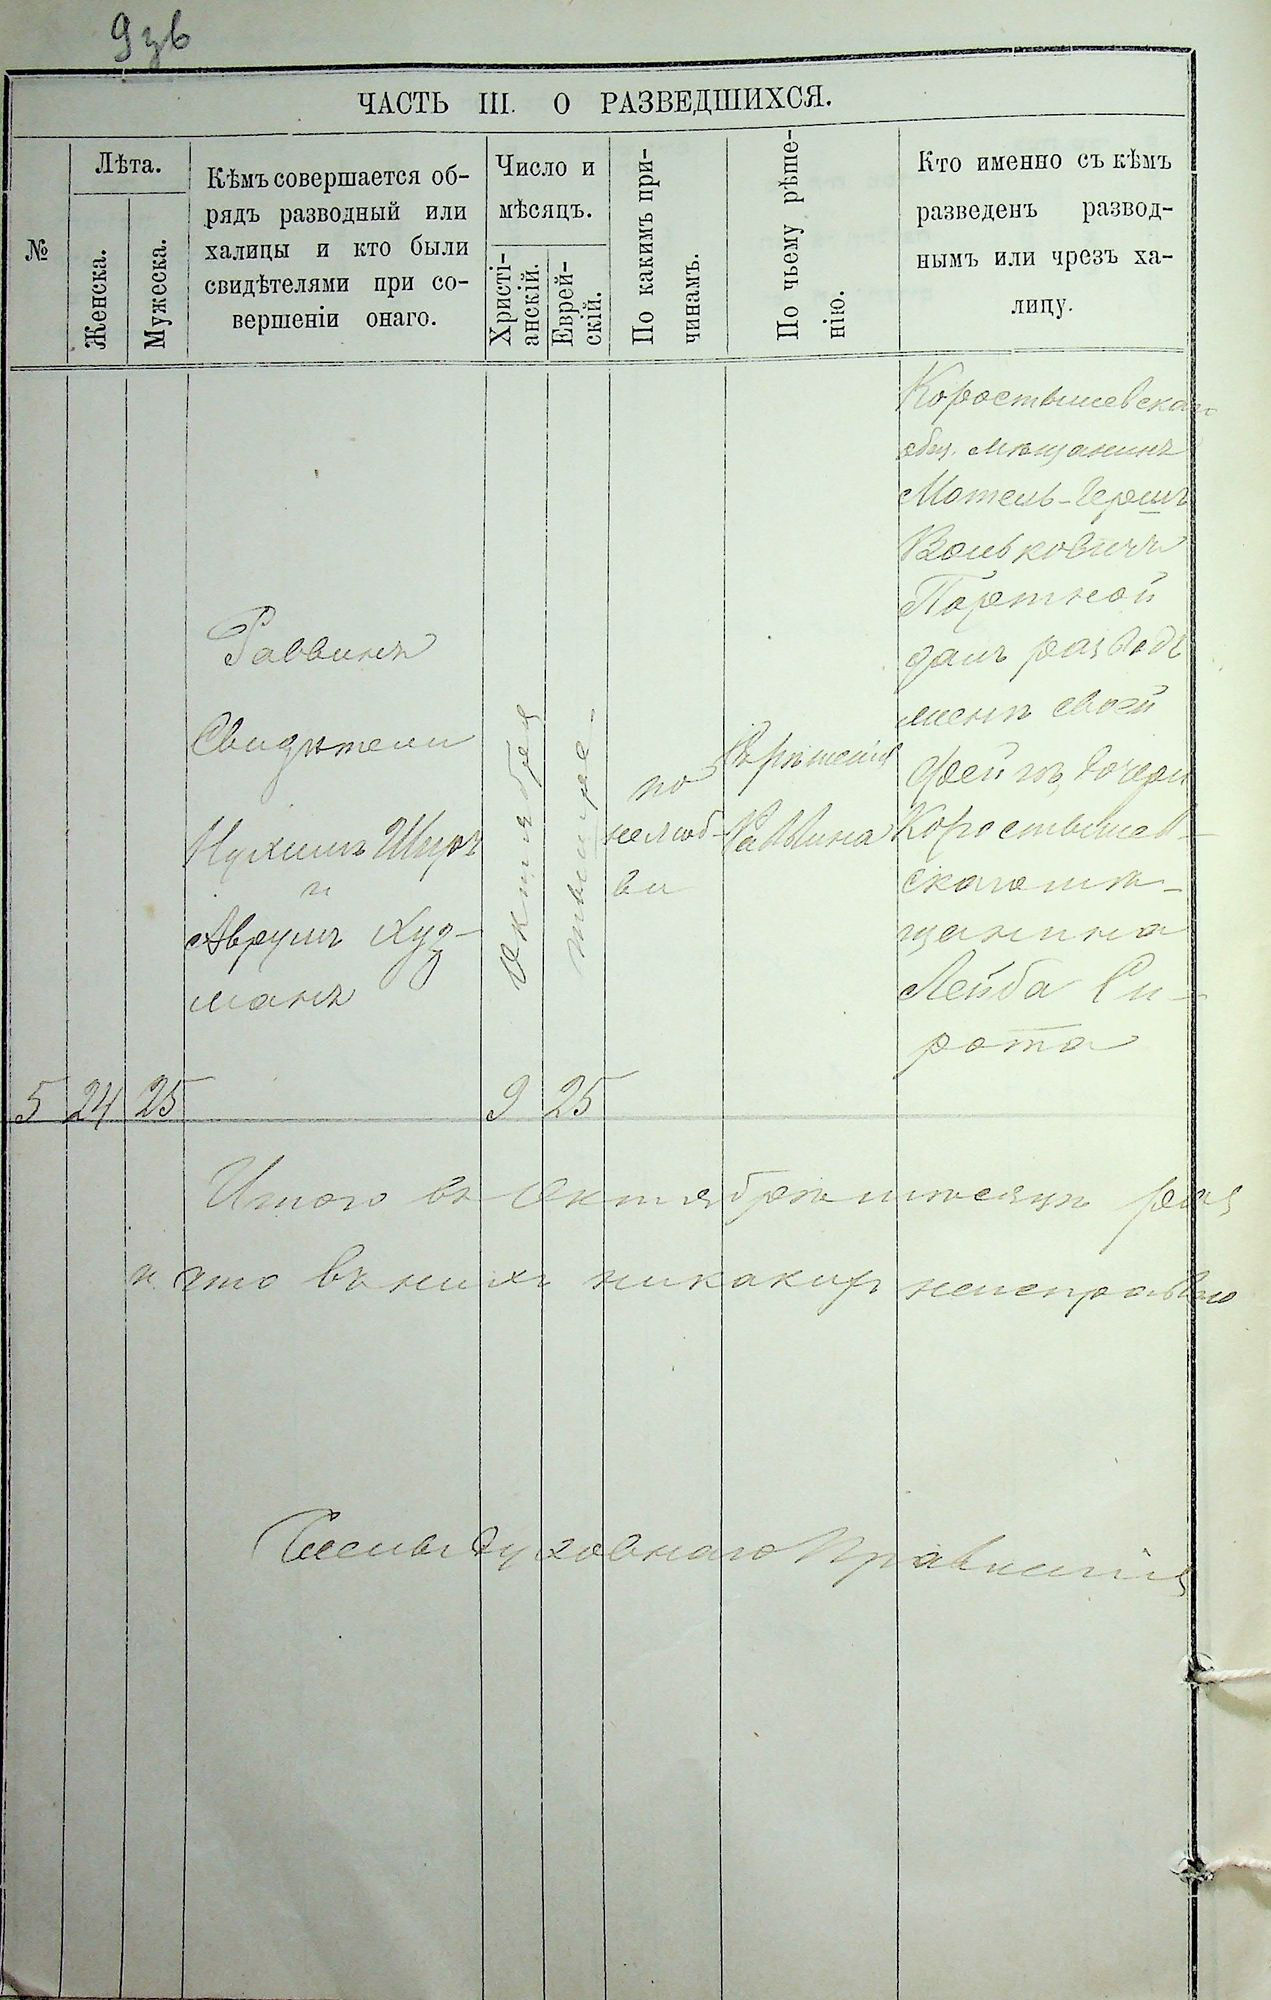 9зв
ЧАСТЬ III. О РАЗВЕДШИХСЯ.
№
Лѣта.
Женска.
Мужеска.
Кѣмъ совершается об-
рядъ разводный или
халицы и кто были
свидѣтелями при со-
вершеніи онаго.
Число и
мѣсяцъ.
Христі-
анскій.
Еврей-
скій.
По какимъ при-
чинамъ.
По чьему рѣше-
нію.
Кто именно съ кѣмъ
разведенъ развод-
нымъ или чрезъ ха-
лицу.
5
24
25
Раввинъ
Свидѣтели
Нухимъ
и
Аврумъ Куд-
манъ
Октября
9
тышре
25
по
нелюб-
ви
Рѣшенія
Раввина
Коростышевскаи
общ. мѣщанинъ
Мотель-Гершъ
Вольковичъ
Портной
далъ разводъ
женѣ своей
Фейгѣ, дочери
Коростышев-
скаго мѣ-
щанина
Лейба Си-
рота
Итого въ Октябрѣ мѣсяцѣ раз
и что въ нихъ никакихъ неисправно
Члены Духовнаго Правленія